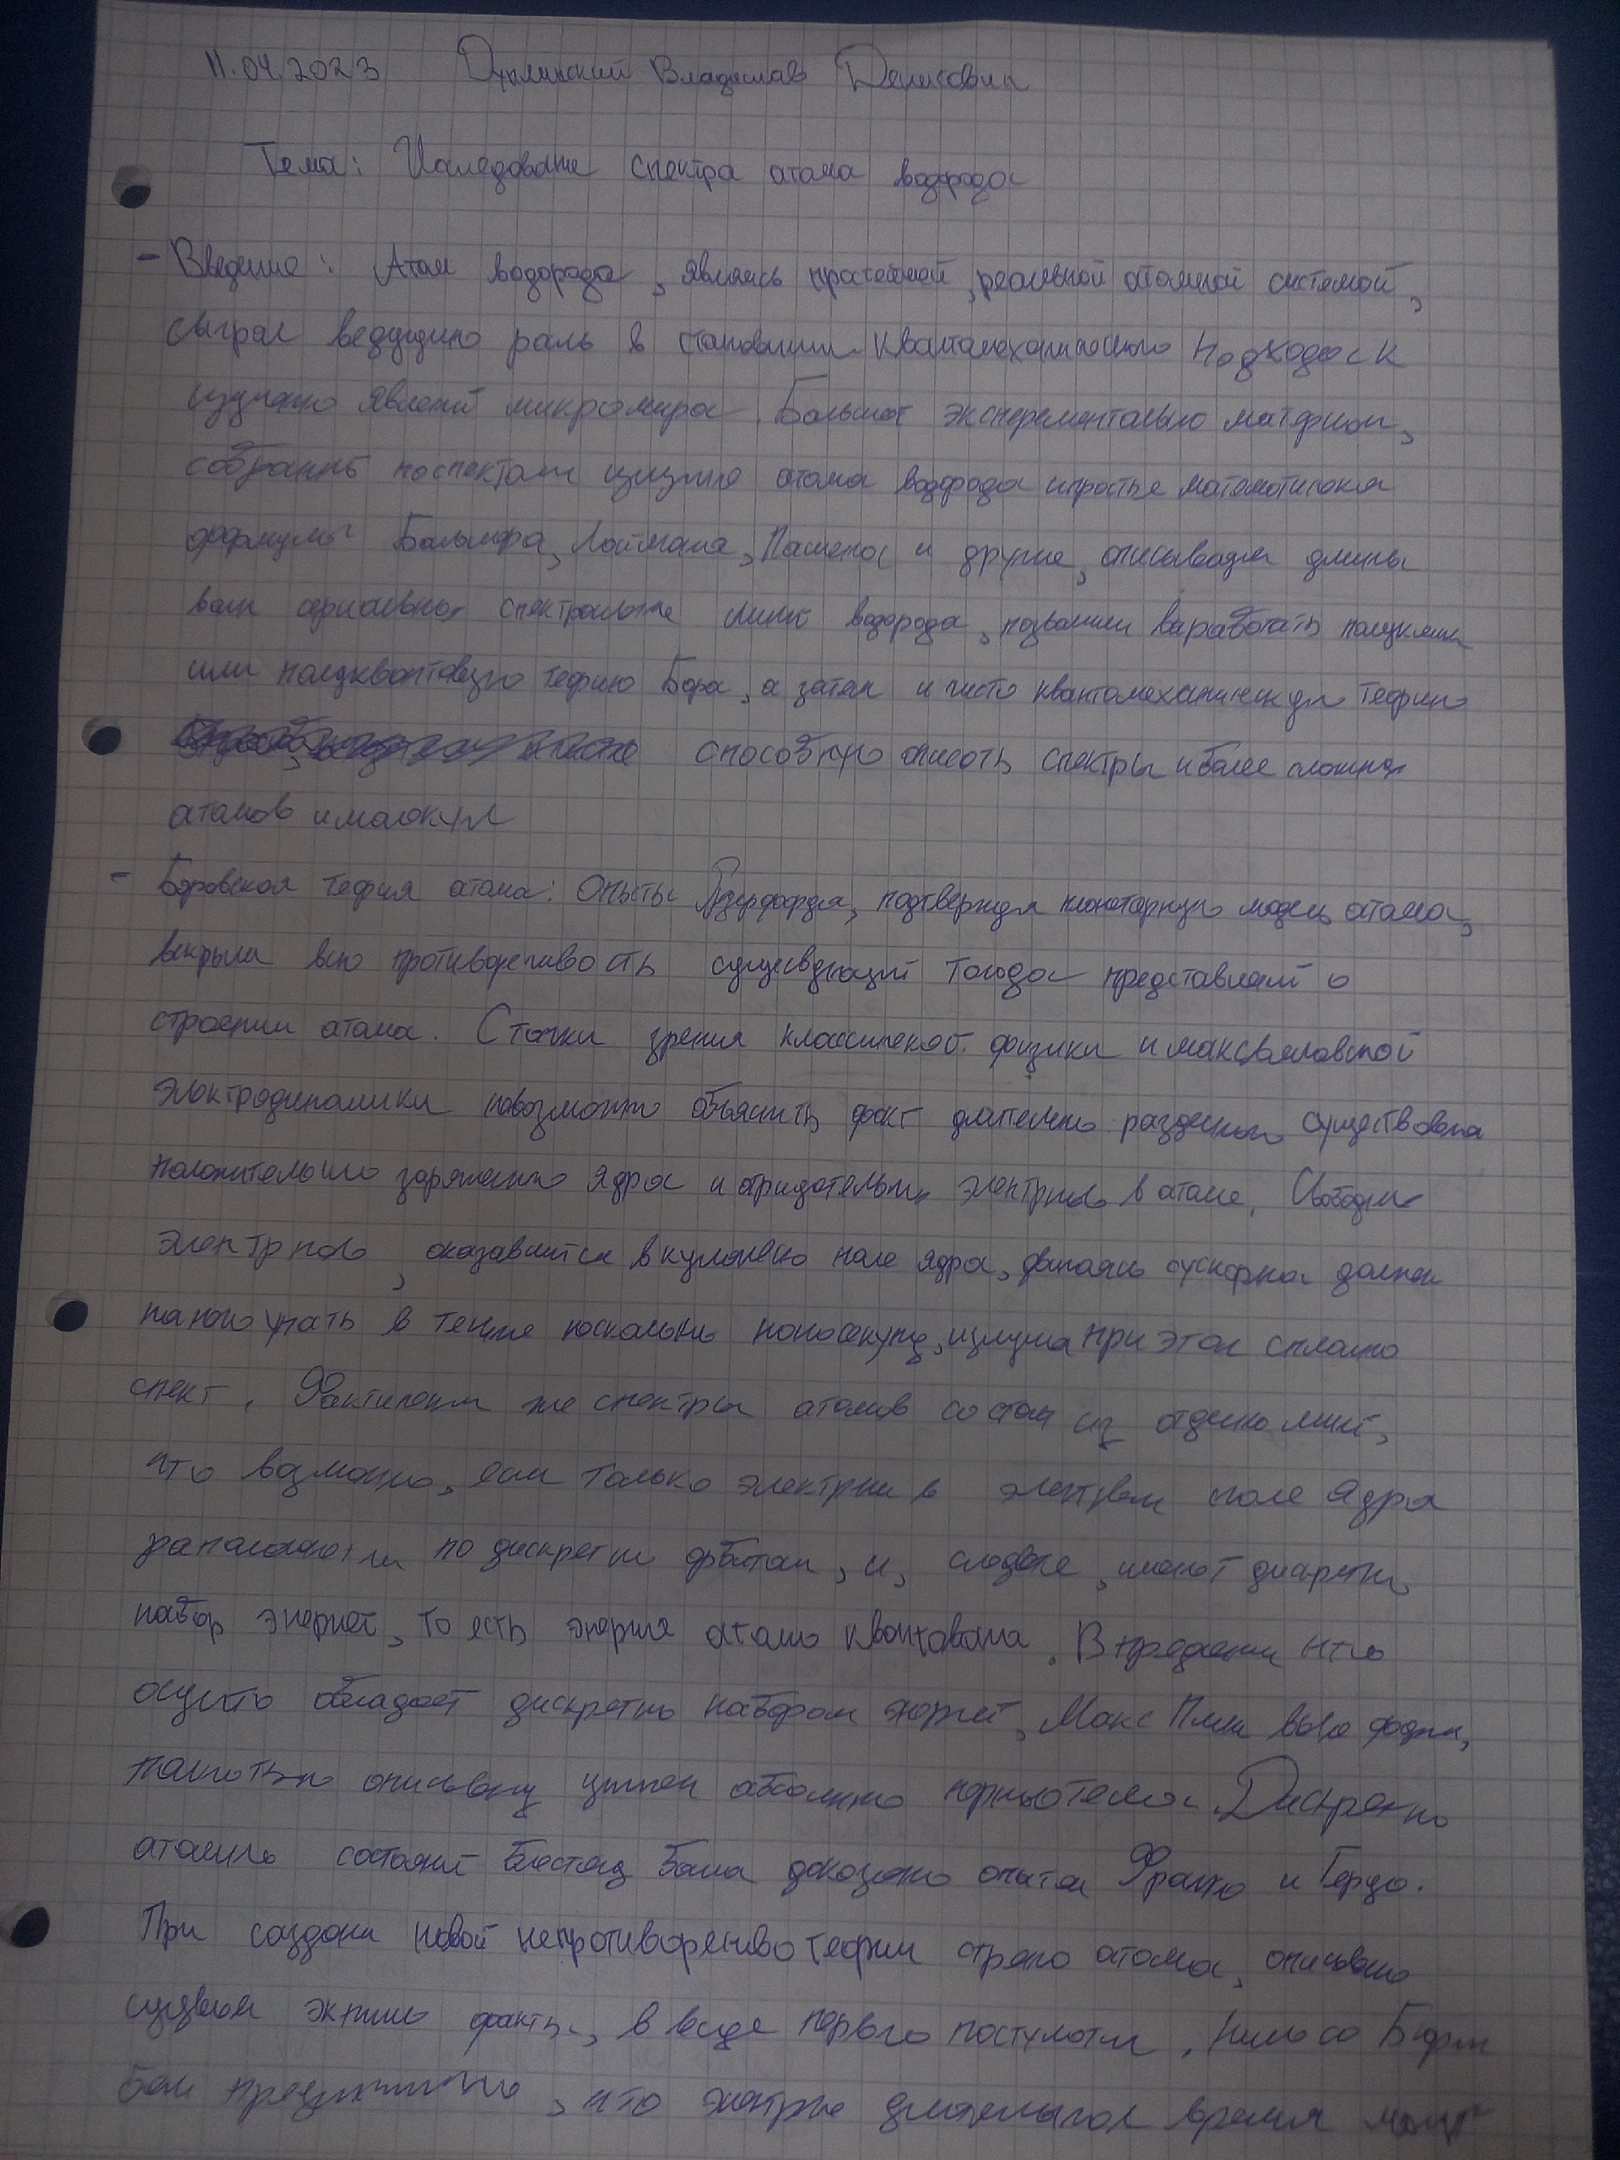 11.04.2023 Владислав Денисович
Тема: Исследование спектра атома водорода
- Введение: Атом водорода, являясь простейшей, реальной атомной системой,
сыграл ведущую роль в становлении квантомеханического подхода к
изучению явлений микромира. Большой экспериментально материал,
собранный по спектрам излучения атома водорода и простые математические
формулы Бальмера, Лаймана, Пашена и другие, описывающие длины
волн сериальных спектральные линий водорода, позволили выработать
или полуквантовую теорию Бора, а затем и чисто квантомеханическую теорию
способную описать спектры и более сложных
атомов и молекул
- Боровская теория атома: Опыты Резерфорда, подтвердив планетарную модель атома,
вскрыли всю противоречивость существующий тогда представлений о
строении атома. С точки зрения классической физики и максвелловской
электродинамики невозможно объяснить факт длительно раздельного существования
положительно заряженного ядра и отрицательных электронов в атоме. Свободный
электронов, оказавшийся в кулоновско поле ядра, двигаясь ускоренно должен
на него упасть в течение нескольких наносекунд, излучая при этом сплошно
спект. Фактически же спектры атомов состоят из отдельно линий,
что возможно, если только электроны в электрическом поле ядра
располагаются по дискретным орбитам, и, следовательно, имеют дискретный
набор энергией, то есть энергия атома квантована. В предположении что
осциллятор обладает дискретным набором энергией, Макс Планк вывел формулу,
абсолютно черного тела. Дискретно
атомных состояний была доказано опытом Франко и Герца.
При создании новой непротиворечиво теории строения атома,
факты, в виде первого постулата, Нильсом Бором
, что электроны длительное время могут